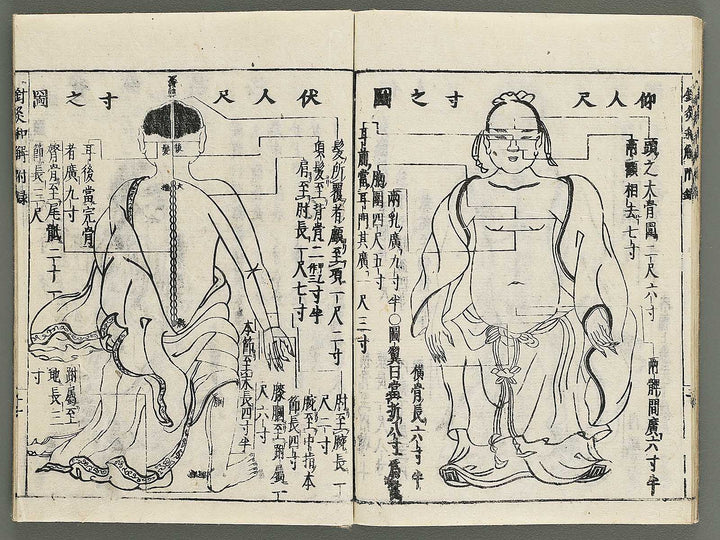 仰人尺寸之圖
頭之大骨圍二尺六寸
兩顴相去七寸
兩髀間廣六寸半
耳前當耳門其廣一尺三寸
胸圍四尺五寸
兩乳廣九寸半○圖翼曰當折八寸爲
橫骨長六寸半
伏人尺寸之圖
髮所覆者顱至項一尺二寸
項髮至背骨二寸半
肩至肘長一尺七寸
肘至腕長一尺二寸
腕至中指本節長四寸
本節至末長四寸半
膝膕至跗屬一尺六寸
耳後當完骨者廣九寸
膂骨至尾骶二十一節長三尺
跗屬至地長三寸
針灸和解附録